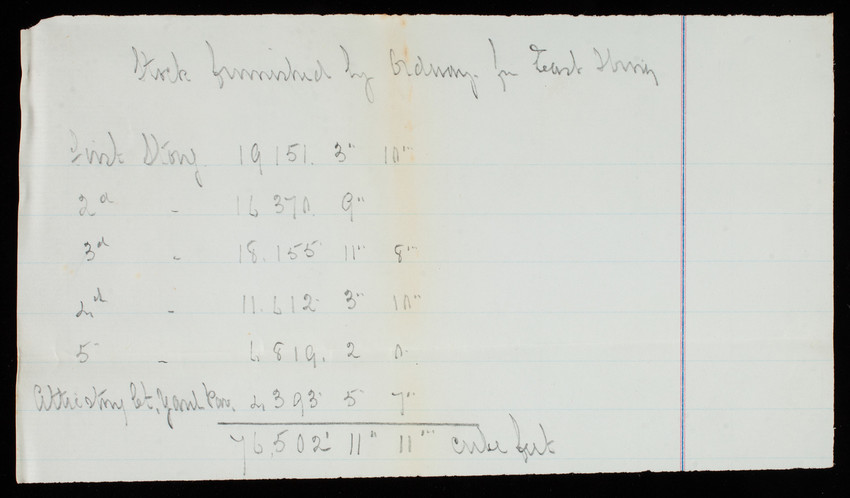 Stock furnished by Ordway for East Wing
First Story. 19151. 3" 10'''
2d " 16 370. 9"
3d " 18.155' 11" 8'''
4th " 11.612' 3" 10'''
5 " 6 819. 2 0.
Attic story Ct. Yard Pav. 4 393' 5" 7'''
76,502' 11" 11''' cube feet